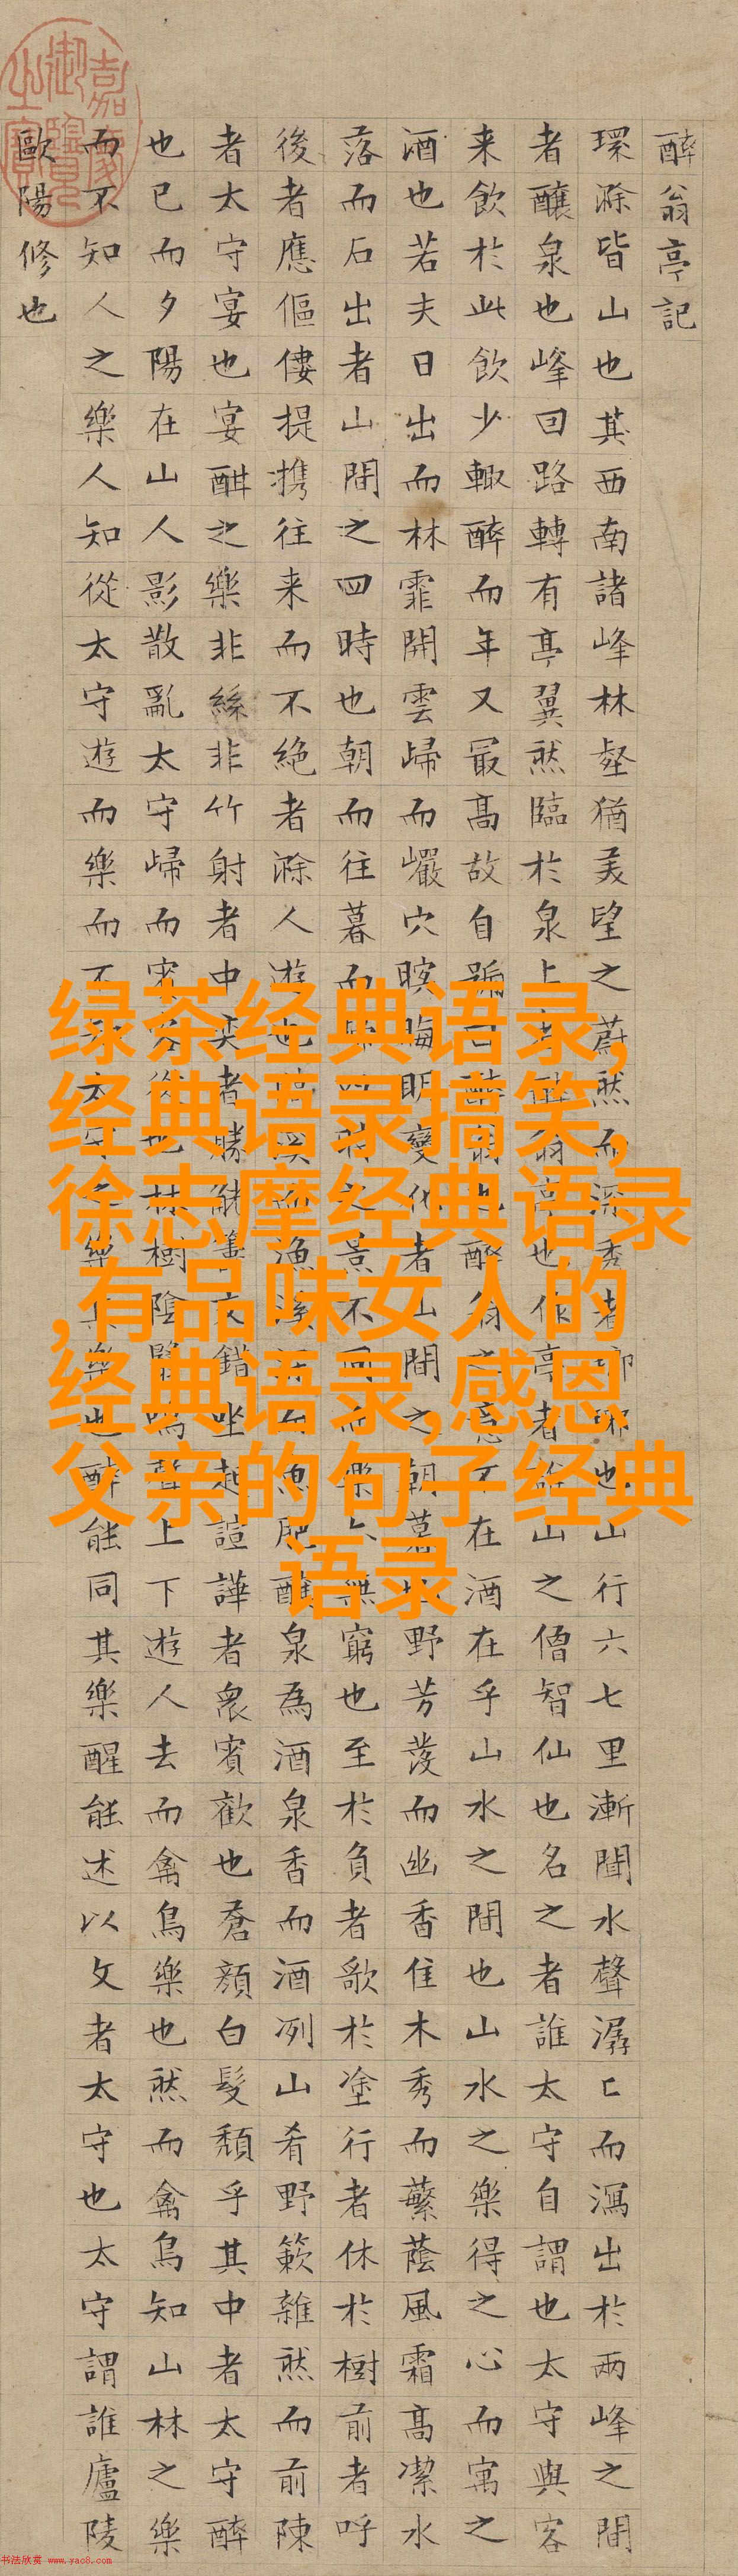 醉翁亭記
環滁皆山也其西南諸峰林壑猶美望之蔚然而深秀者瑯琊也山行六七里漸聞水聲潺〻而瀉出於兩峰之間
者釀泉也峰回路轉有亭翼然臨於泉上者醉翁亭也作亭者誰山之僧智仙也名之者誰太守自謂也太守與客
来飲於此飲少輒醉而年又最高故自號曰醉翁也醉翁之意不在酒在乎山水之間也山水之樂得之心而寓之
酒也若夫日出而林霏開雲歸而巖穴暝晦明變化者山間之朝暮也野芳發而幽香佳木秀而蘩蔭風霜高潔水
落而石出者山間之四時也朝而往暮而歸四時之景不同而樂亦無窮也至於負者歌於塗行者休於樹前者呼
後者應傴僂提携往来而不絶者滁人遊也臨溪而漁溪深而魚肥釀泉為酒泉香而酒冽山肴野蔌雜然而前陳
者太守宴也宴酣之樂非絲非竹射者中奕者勝觥籌交錯坐起諠譁者衆賓歡也蒼顔白髮頹乎其中者太守醉
也已而夕陽在山人影散亂太守歸而賓客從也林樹陰翳鳴聲上下遊人去而禽鳥樂也然而禽鳥知山林之樂
而不知人之樂人知從太守遊而樂而不知太守之樂其樂也醉能同其樂醒能述以文者太守也太守謂誰廬陵
歐陽修也
嘉慶御覽之寶
绿茶经典语录,
经典语录搞笑,
徐志摩经典语录
,有品味女人的
经典语录,感恩
父亲的句子经典
语录
书法欣赏 www.yac8.com